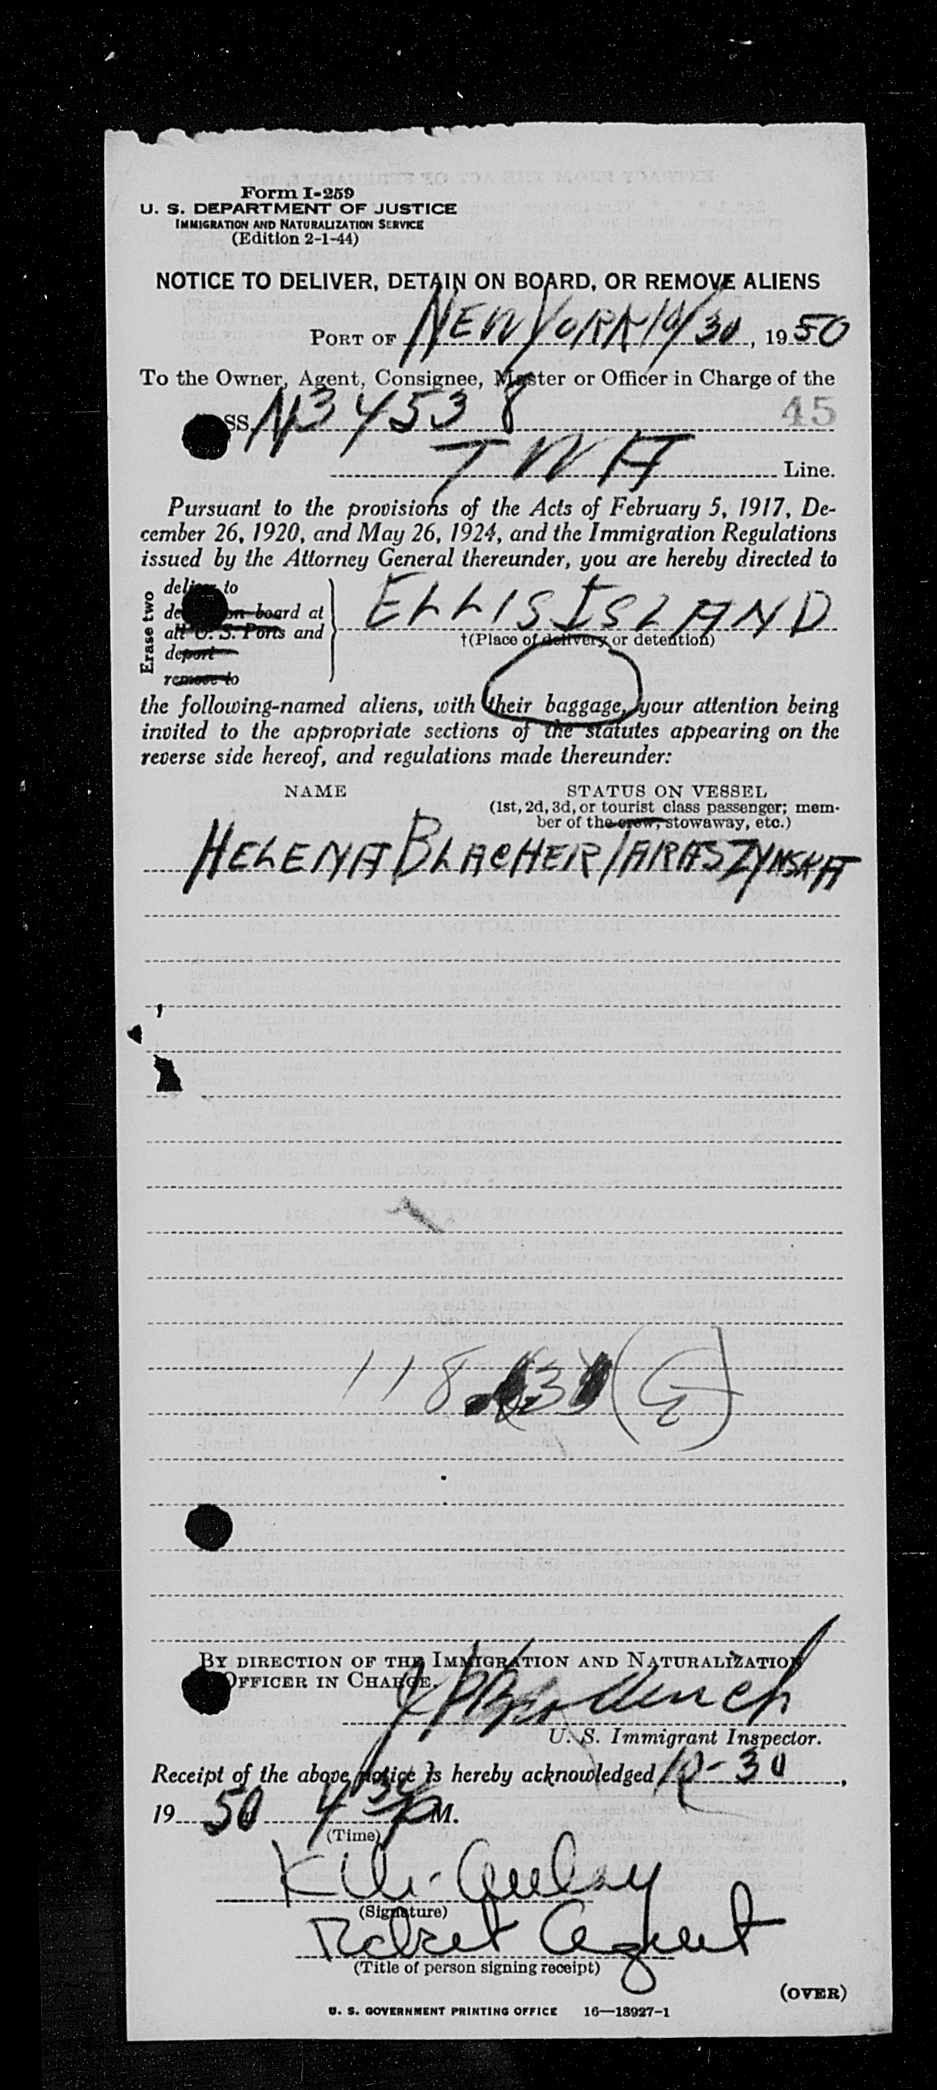 Form I-259
U. S. DEPARTMENT OF JUSTICE
IMMIGRATION AND NATURALIZATION SERVICE
(Edition 2-1-44)
NOTICE TO DELIVER, DETAIN ON BOARD, OR REMOVE ALIENS
PORT OF NEW YORK 10/30, 1950
To the Owner, Agent, Consignee, Master or Officer in Charge of the
SS. N34538 45
TWA Line.
Pursuant to the provisions of the Acts of February 5, 1917, De-
cember 26, 1920, and May 26, 1924, and the Immigration Regulations
issued by the Attorney General thereunder, you are hereby directed to
Erase two
deliver to
on board at
all U. S. Ports and
deport
remove to
ELLIS ISLAND
†(Place of delivery or detention)
the following-named aliens, with their baggage, your attention being
invited to the appropriate sections of the statutes appearing on the
reverse side hereof, and regulations made thereunder:
NAME STATUS ON VESSEL
(1st, 2d, 3d, or tourist class passenger; mem-
ber of the crew, stowaway, etc.)
HELENA BLACHER TARASZYNSKA
118
BY DIRECTION OF THE IMMIGRATION AND NATURALIZATION
OFFICER IN CHARGE.
U. S. Immigrant Inspector.
Receipt of the above notice is hereby acknowledged 10-30,
1950 4 30 PM.
(Time)
(Signature)
Agent
(Title of person signing receipt)
(OVER)
U. S. GOVERNMENT PRINTING OFFICE 16—18927-1